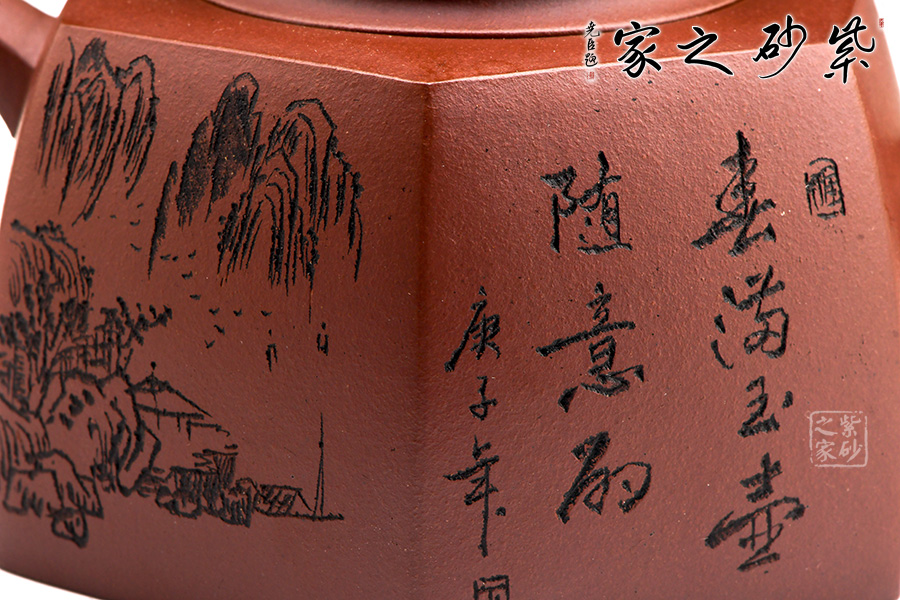 紫砂之家
尧臣题
春满玉壶
随意酌
庚子年
紫砂之家